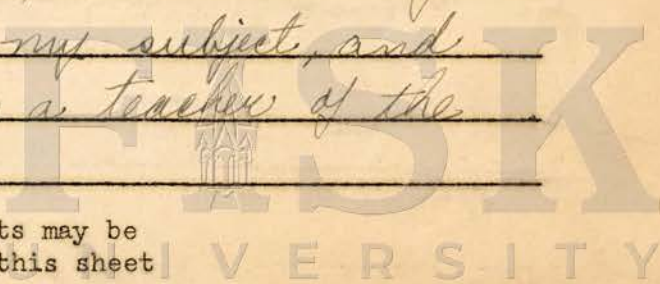 my subject, and
a teacher of the
ts may be
this sheet
FISK
UNIVERSITY